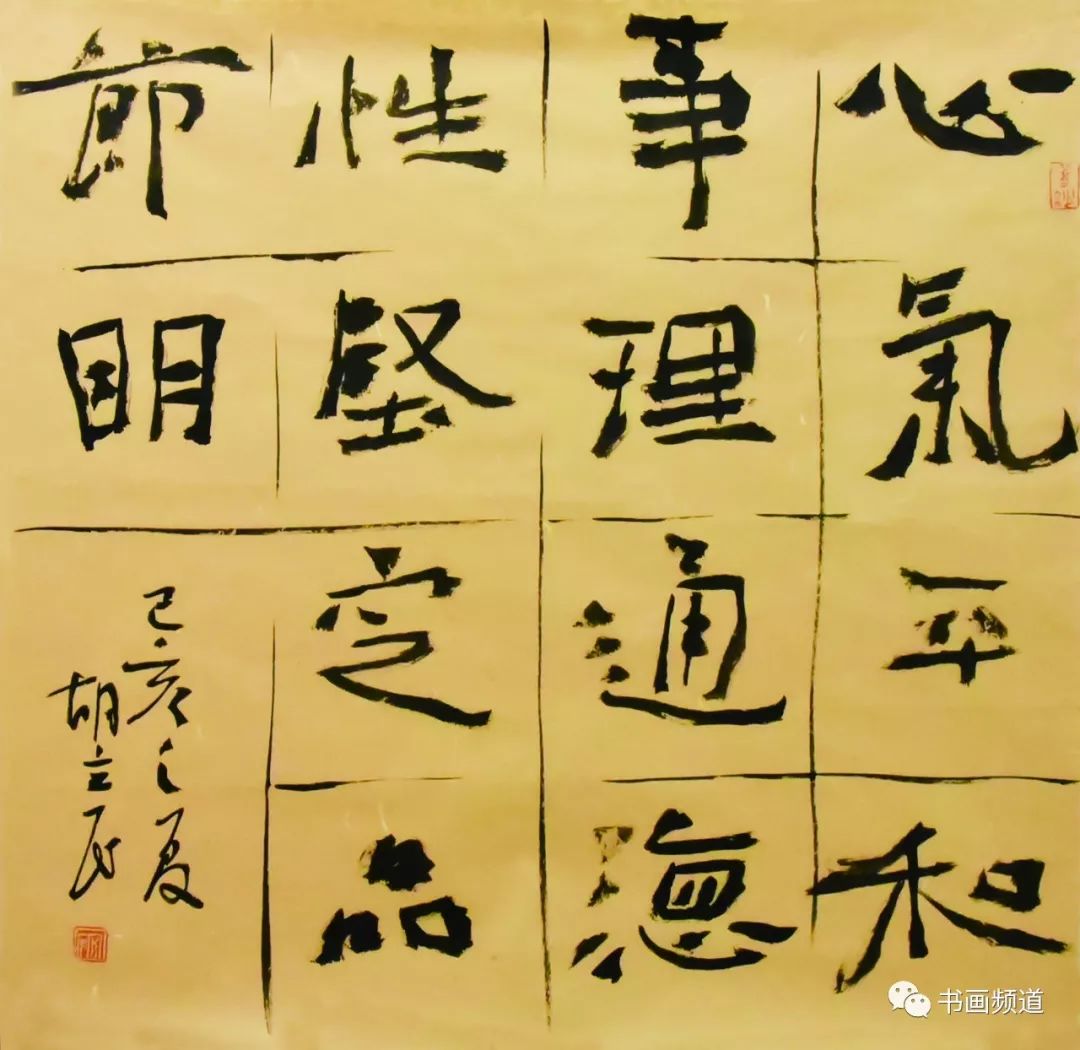 心氣平和
事理通德
性堅定品
節明
己亥之夏
胡立民
书画频道